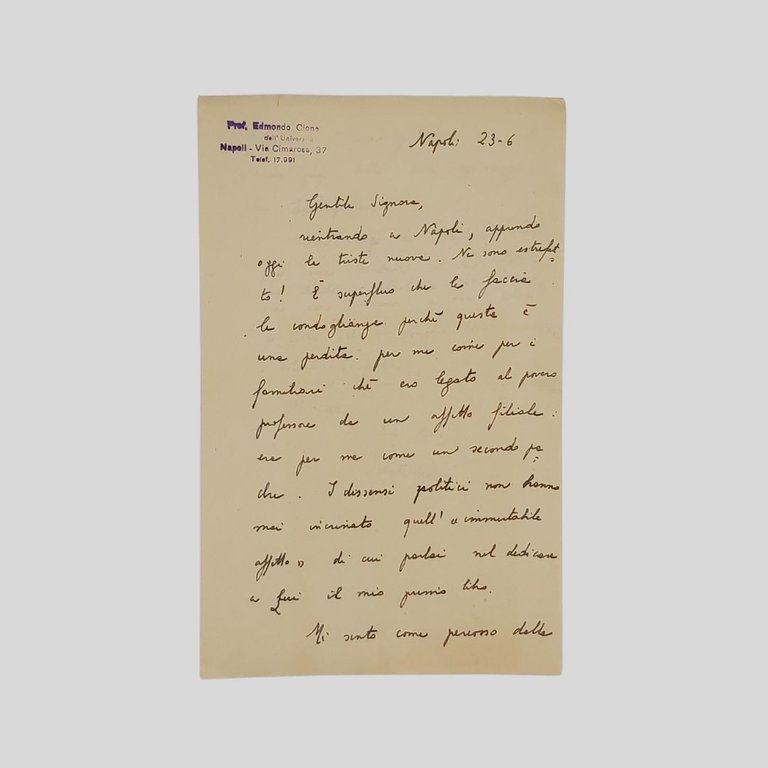 Prof. Edmondo Cione
dell'Università
Napoli - Via Cimarosa, 37
Telef. 17.991
Napoli 23-6
Gentile Signora,
rientrando a Napoli, apprendo
oggi la triste nuova. Ne sono estrefat-
to! È superfluo che le faccia
le condoglianze perché questa è
una perdita per me come per i
familiari ché ero legato al povero
professore da un affetto filiale:
era per me come un secondo pa-
dre. I dissensi politici non hanno
mai incrinato quell' «immutabile
affetto» di cui parlai nel dedicare
a Lui il mio primo libro.
Mi sento come percosso dalla